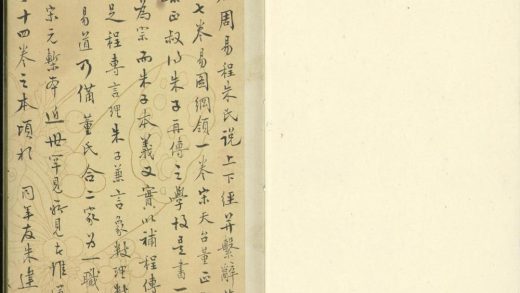 周易程朱氏説上下經并繫辭
七卷易圖綱領一卷宋天台董正
正叔乃朱子再傳之學故是書一
為宗而朱子本義又實以補程傳
是程專言理朱子兼言象數理
易道乃備董氏合二家為一
宋元槧本近世罕見所見者惟
十四卷之本頃於同年友朱